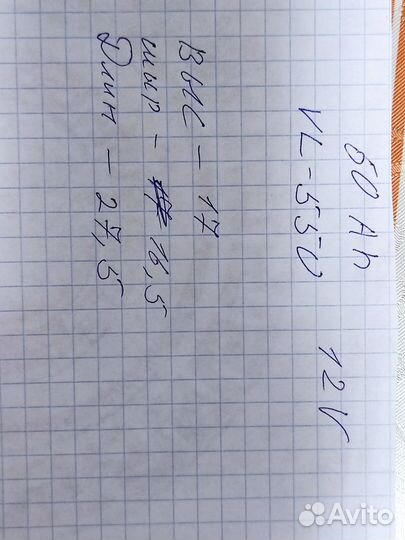 60 Ah
VL-550 12V
Выс - 17
шыр - 16,5
Длин - 27,5
Avito